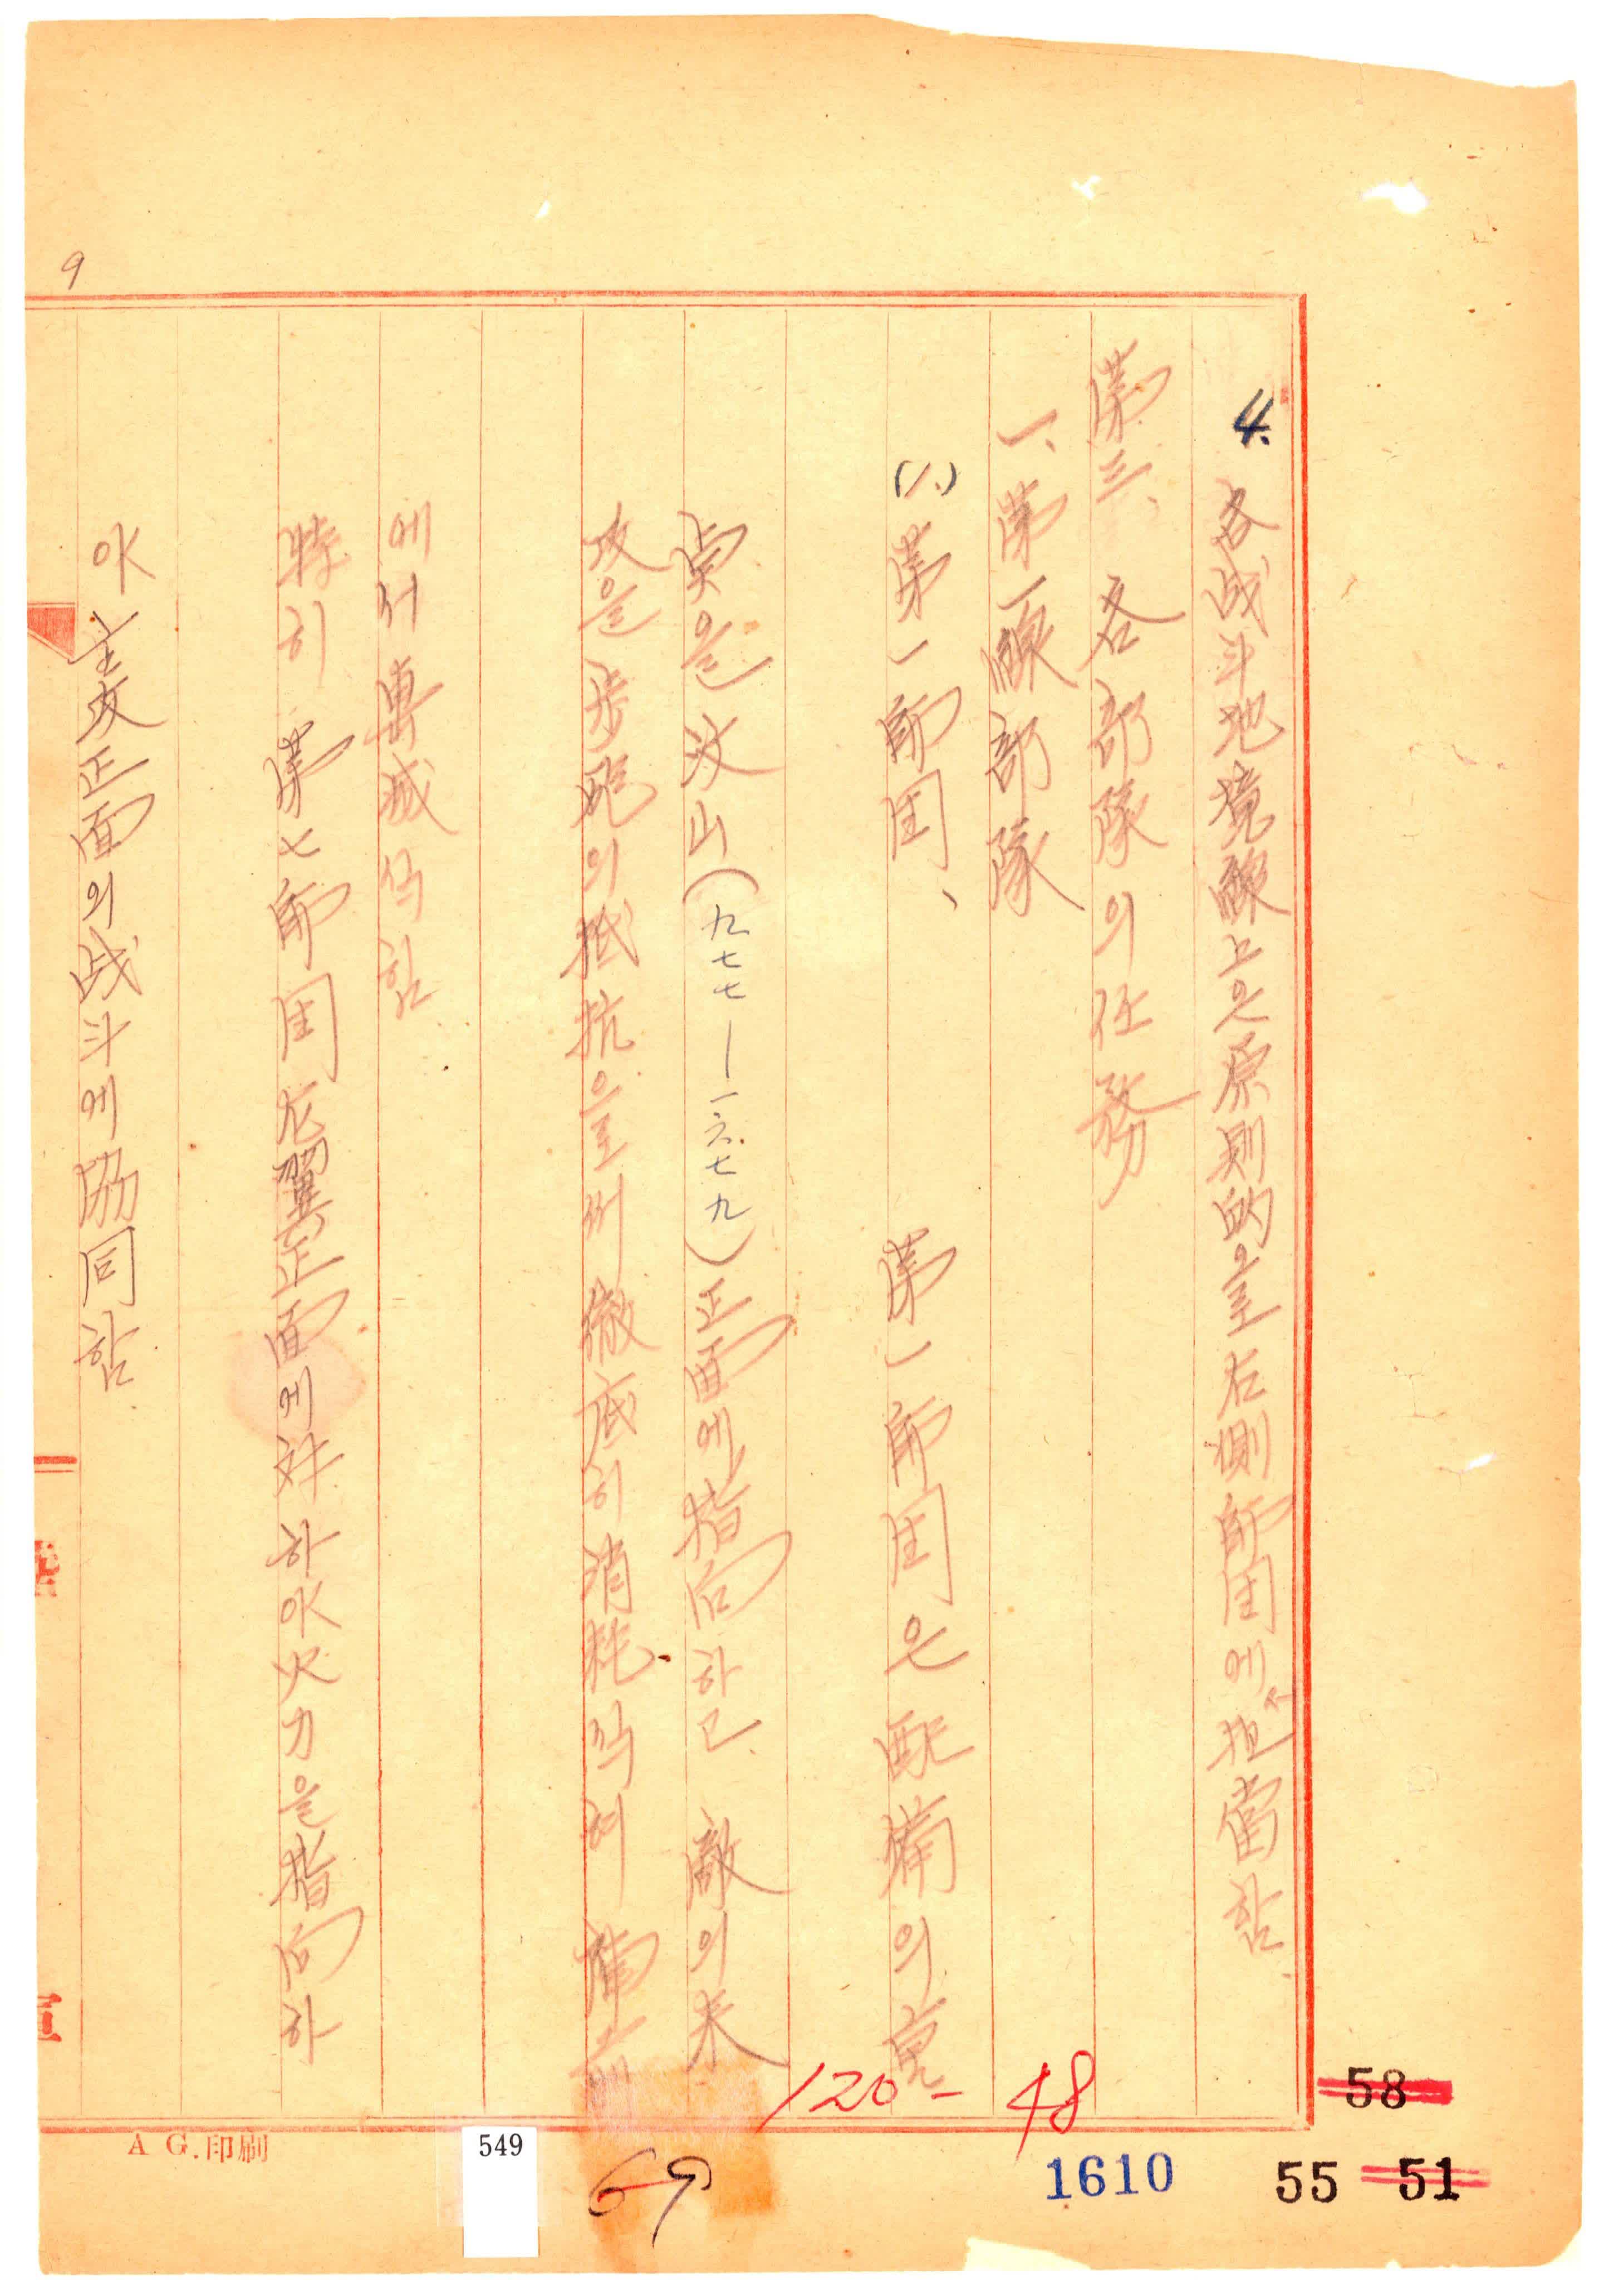 4. 各战斗地境線上은 原則的으로 右側師团에 担當함
第三、各部隊의 任務
一、第一線部隊
(1.) 第一師团、 第一師团은 配備의 重
点을 汶山(九七七—一六.七九)正面에 指向하고 敵의 来
攻을 步砲의 抵抗으로써 徹底히 消耗식혀 陣前
에서 擊滅식힘
特히 第七師团 左翼正面에 対하야 火力을 指向하
야 主攻正面의 战斗에 協同함
9
120-
48
58
55 51
1610
69
549
A G.印刷